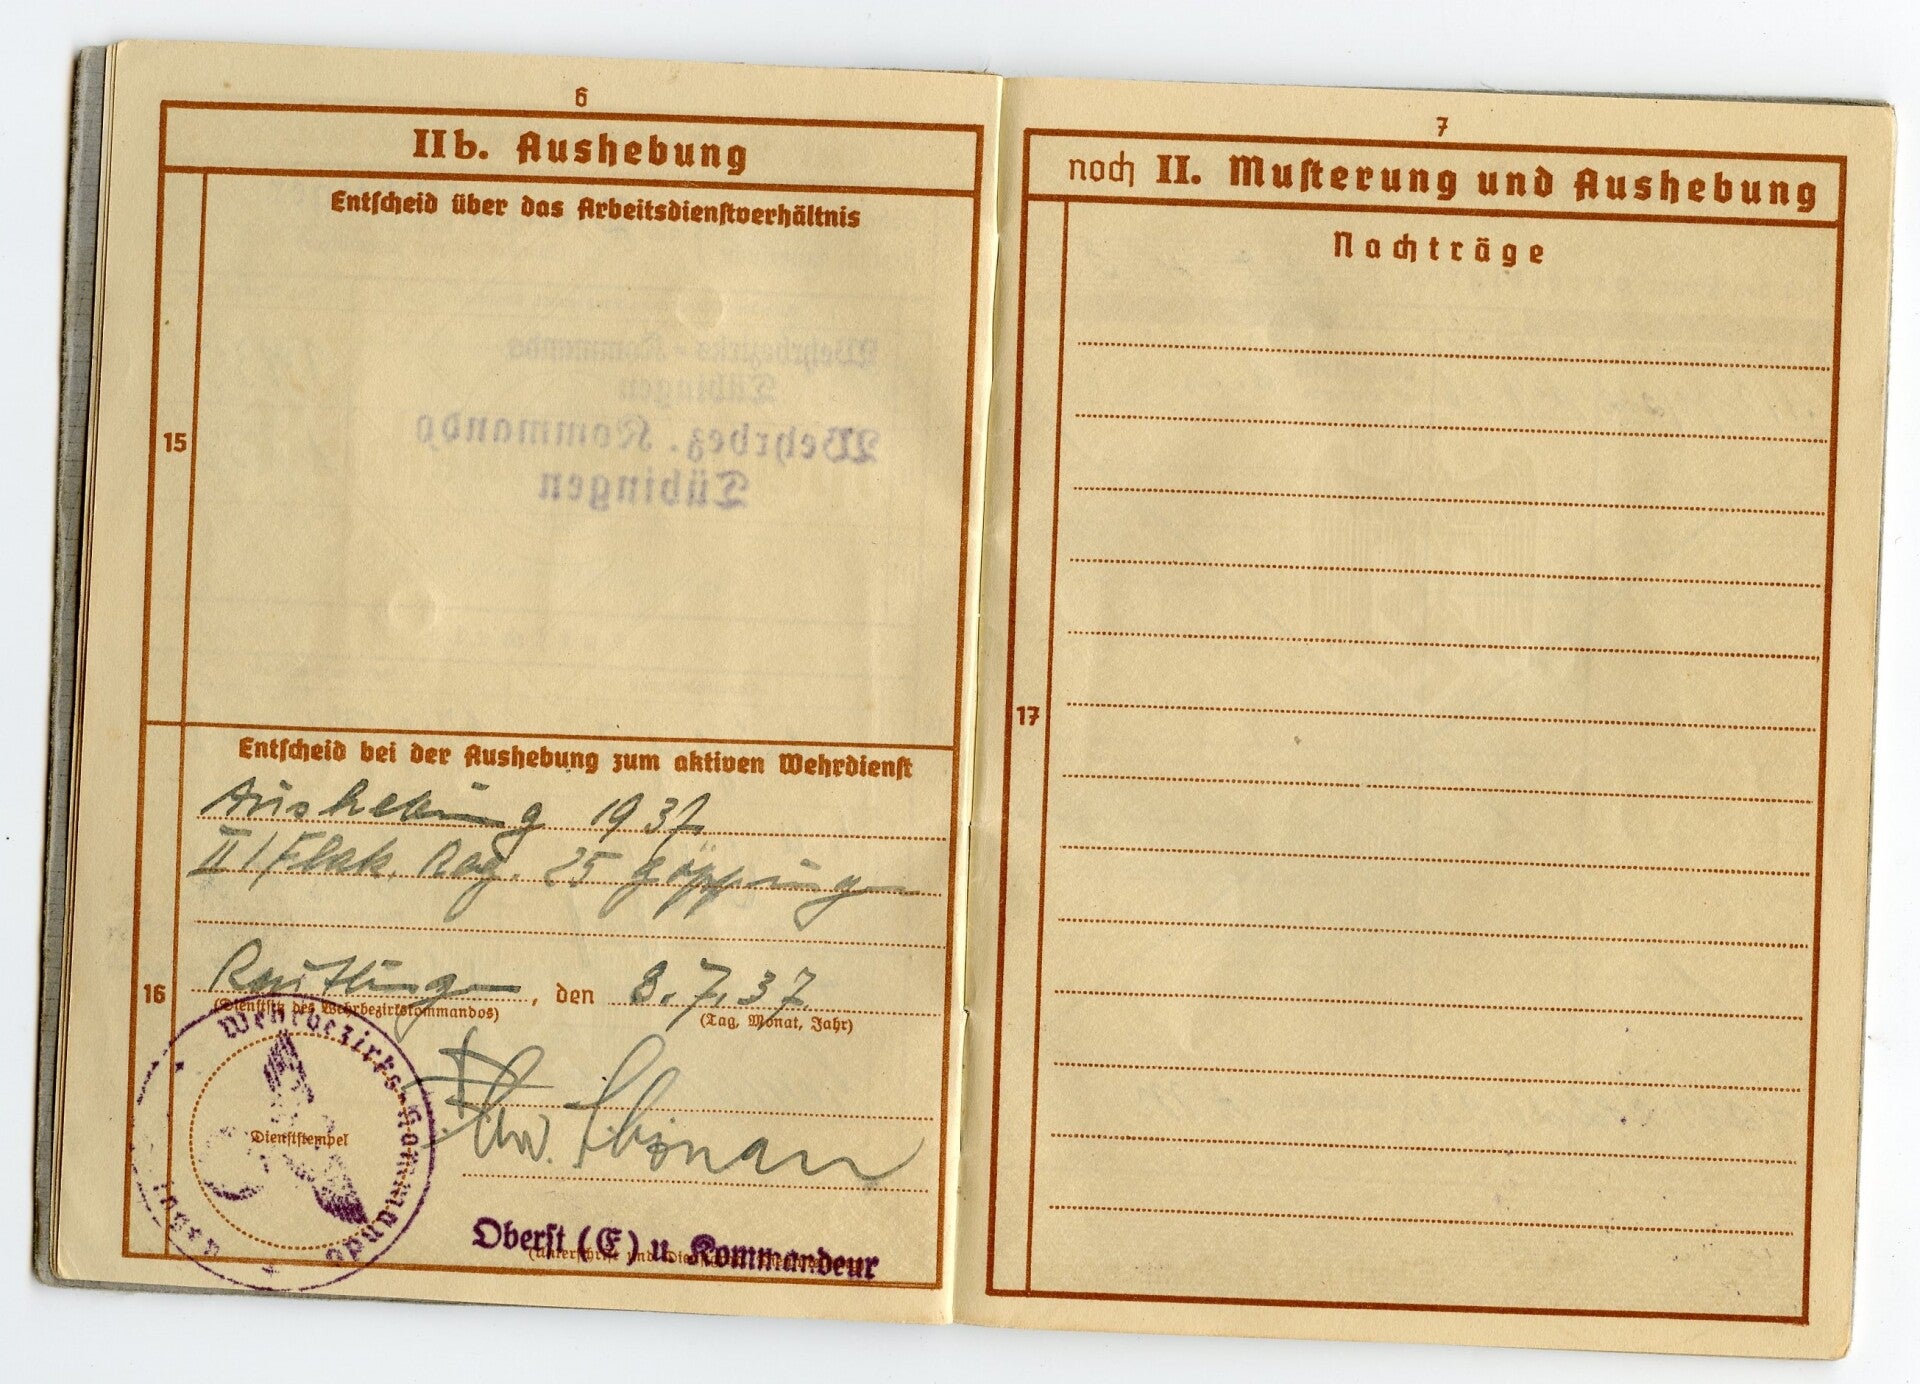 6
IIb. Aushebung
Entscheid über das Arbeitsdienstverhältnis
15
Wehrbezirks-Kommando
Tübingen
Wehrbez. Kommando
Tübingen
Entscheid bei der Aushebung zum aktiven Wehrdienst
Aushebung 1937
II/Flak. Reg. 25 Göppingen
16
Reutlingen, den 8.7.37
(Dienstsitz des Wehrbezirkskommandos)
(Tag, Monat, Jahr)
Wehrbezirks-Kommando
Dienststempel
Oberst (E) u. Kommandeur
7
noch II. Musterung und Aushebung
Nachträge
17